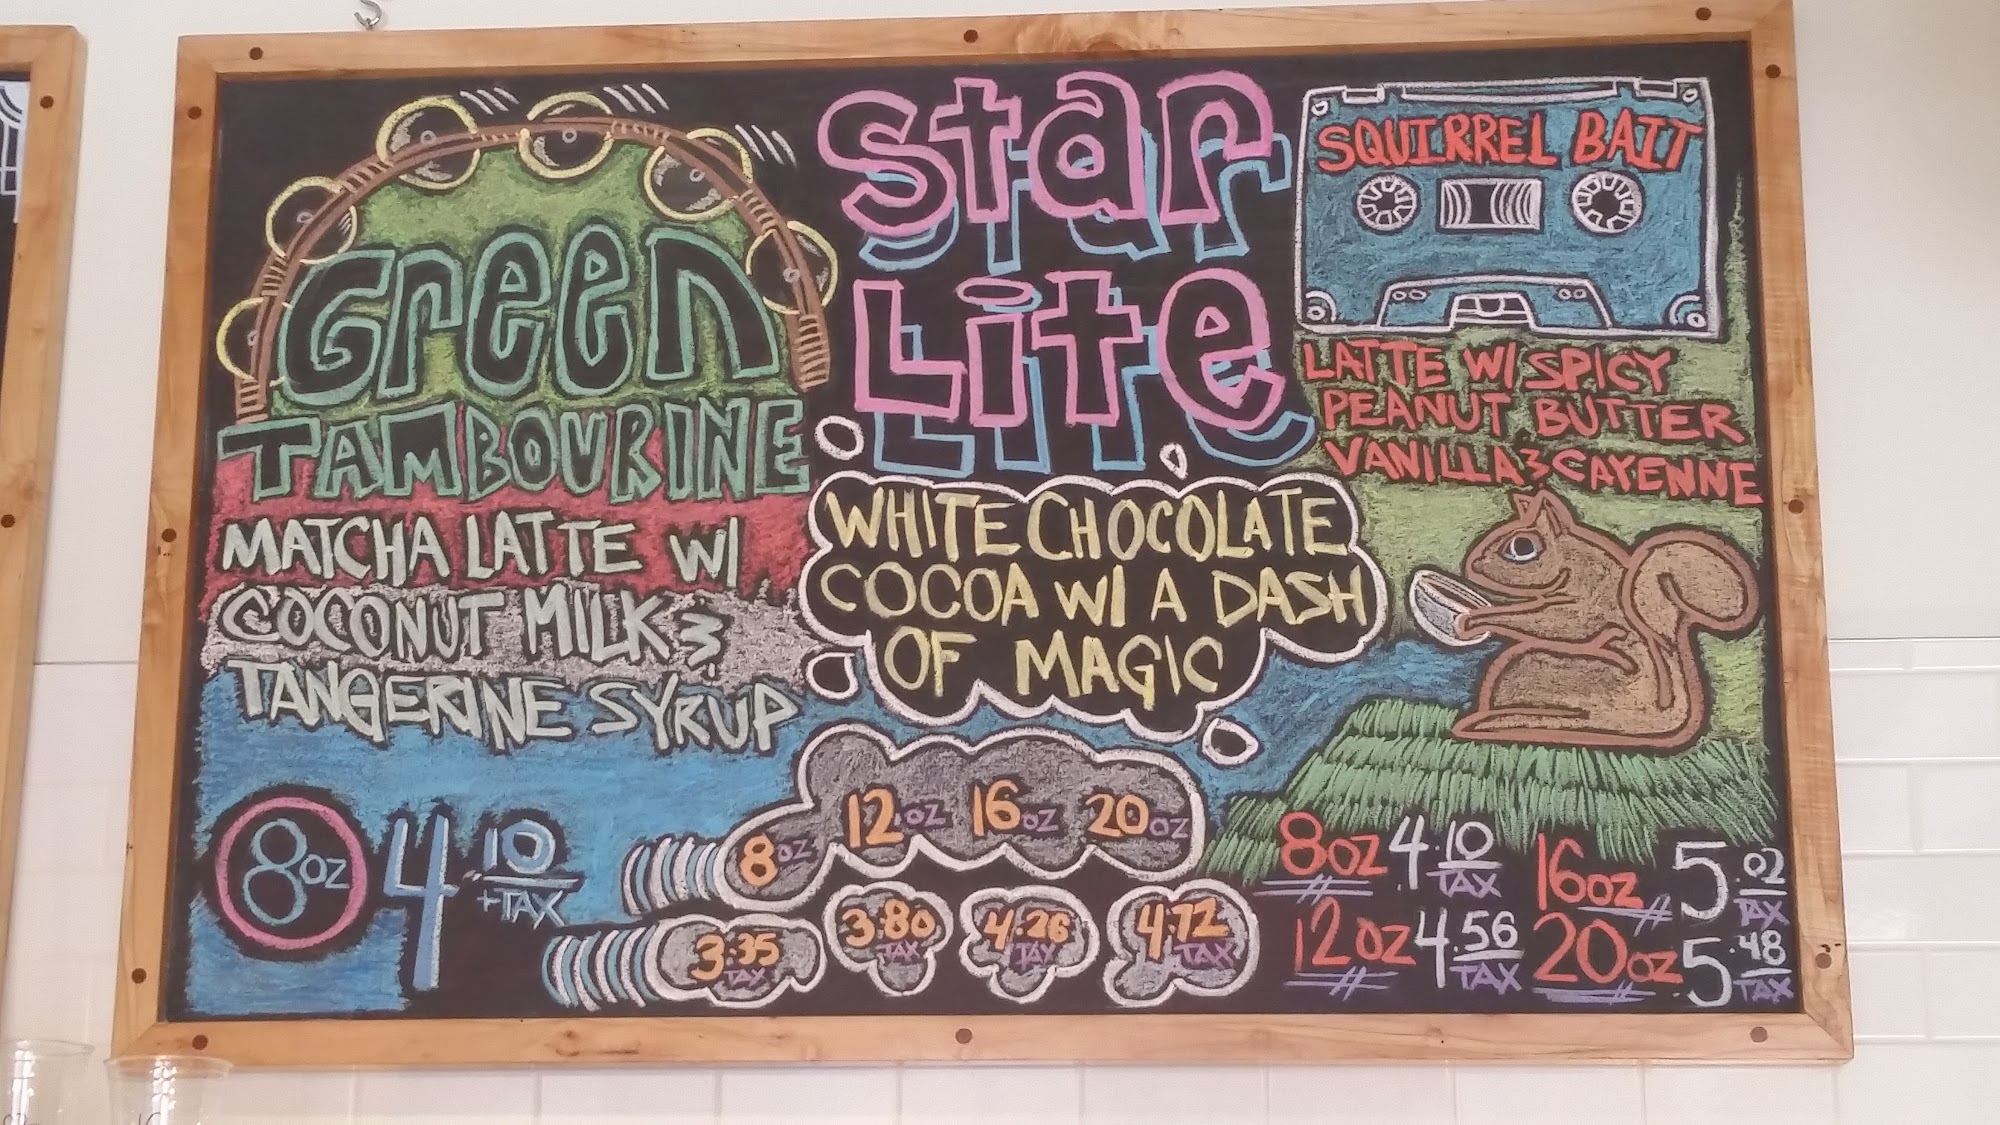 Green
TAMBOURINE
MATCHA LATTE W/
COCONUT MILK &
TANGERINE SYRUP
8oz 4.10
+TAX
Star
Lite
WHITE CHOCOLATE
COCOA W/ A DASH
OF MAGIC
8oz 12oz 16oz 20oz
3.35 TAX 3.80 TAX 4.26 TAX 4.72 TAX
SQUIRREL BAIT
LATTE W/ SPICY
PEANUT BUTTER
VANILLA & CAYENNE
8oz 4.10 TAX 16oz 5.02 TAX
12oz 4.56 TAX 20oz 5.48 TAX